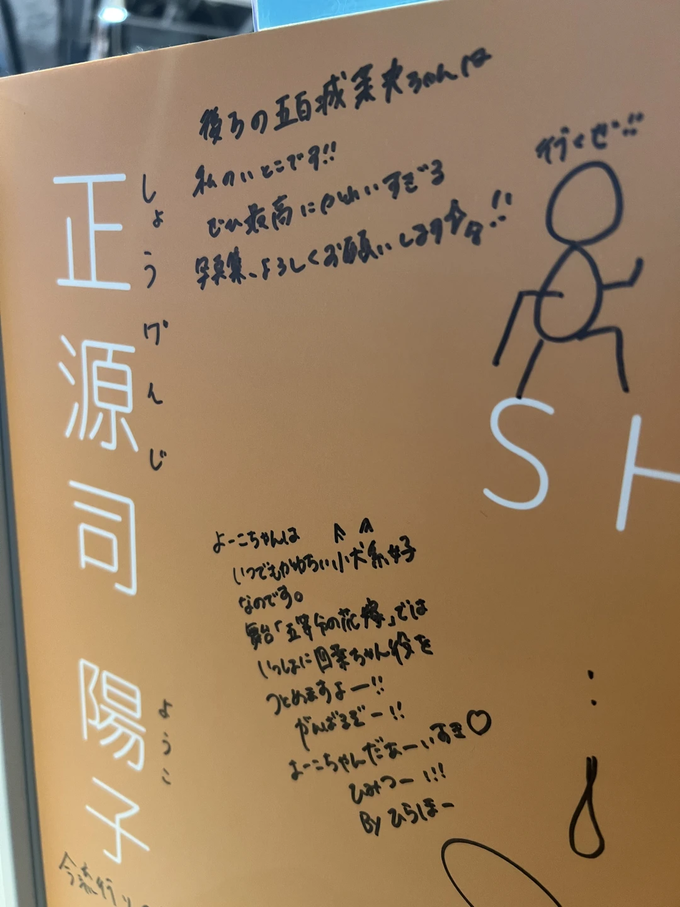 正源司 陽子
しょうげんじ
ようこ
後ろの五百城茉央ちゃんは
私のいとこです!!
ビジュ最高にかわいすぎる
写真集、よろしくお願いします!!
行くぜ!!
SH
よーこちゃんは
いつでもかわちぃ小犬系女子
なのです。
舞台「五等分の花嫁」では
いっしょに四葉ちゃん役を
つとめますよー!!
がんばるぞー!!
よーこちゃんだぁーいすき♡
ひみつー!!!
By ひらほー